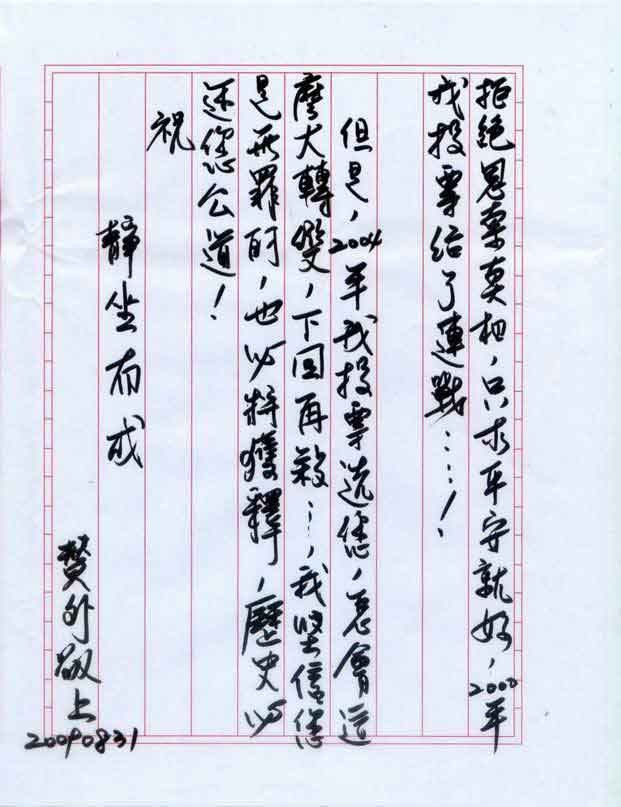 拒絕思索真相，只求平安就好，2000年
我投票給了連戰…！
但是，2004年我投票選您，怎會這
麼大轉變，下回再敘…，我堅信您
是無罪的，也必將獲釋，歷史必
還您公道！
祝
靜坐有成
敬上
20090831